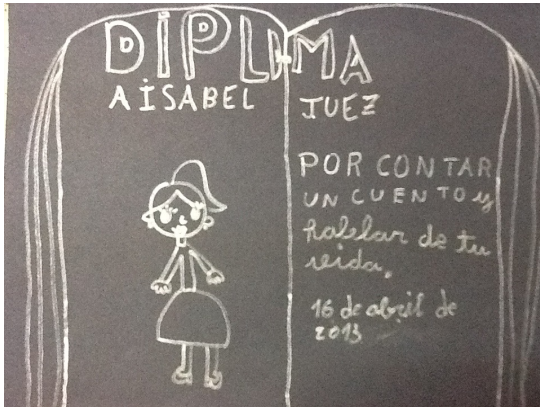 DIPLOMA
A ISABEL JUEZ
POR CONTAR
UN CUENTO y
hablar de tu
vida.
16 de abril de
2013